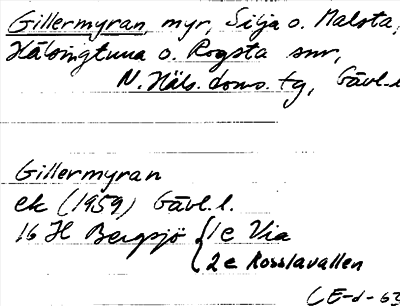 Gillermyran, myr, Silja o. Malsta,
Hälsingtuna o. Rogsta snr,
N. Häls. doms. tg, Gävl.l
Gillermyran
ek (1959) Gävl.l.
16 H Bergsjö { 1e Via
2e Rosslavallen
CE-d-63